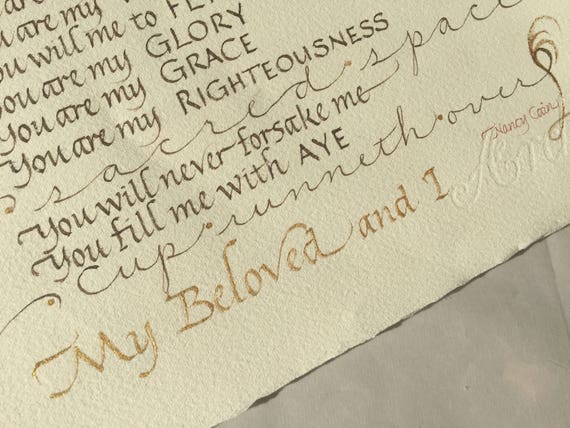 you are my
you will me to
you are my GLORY
you are my GRACE
You are my RIGHTEOUSNESS
sacred space
You will never forsake me
You fill me with AYE
cup runneth over
Nancy Cain
My Beloved and I